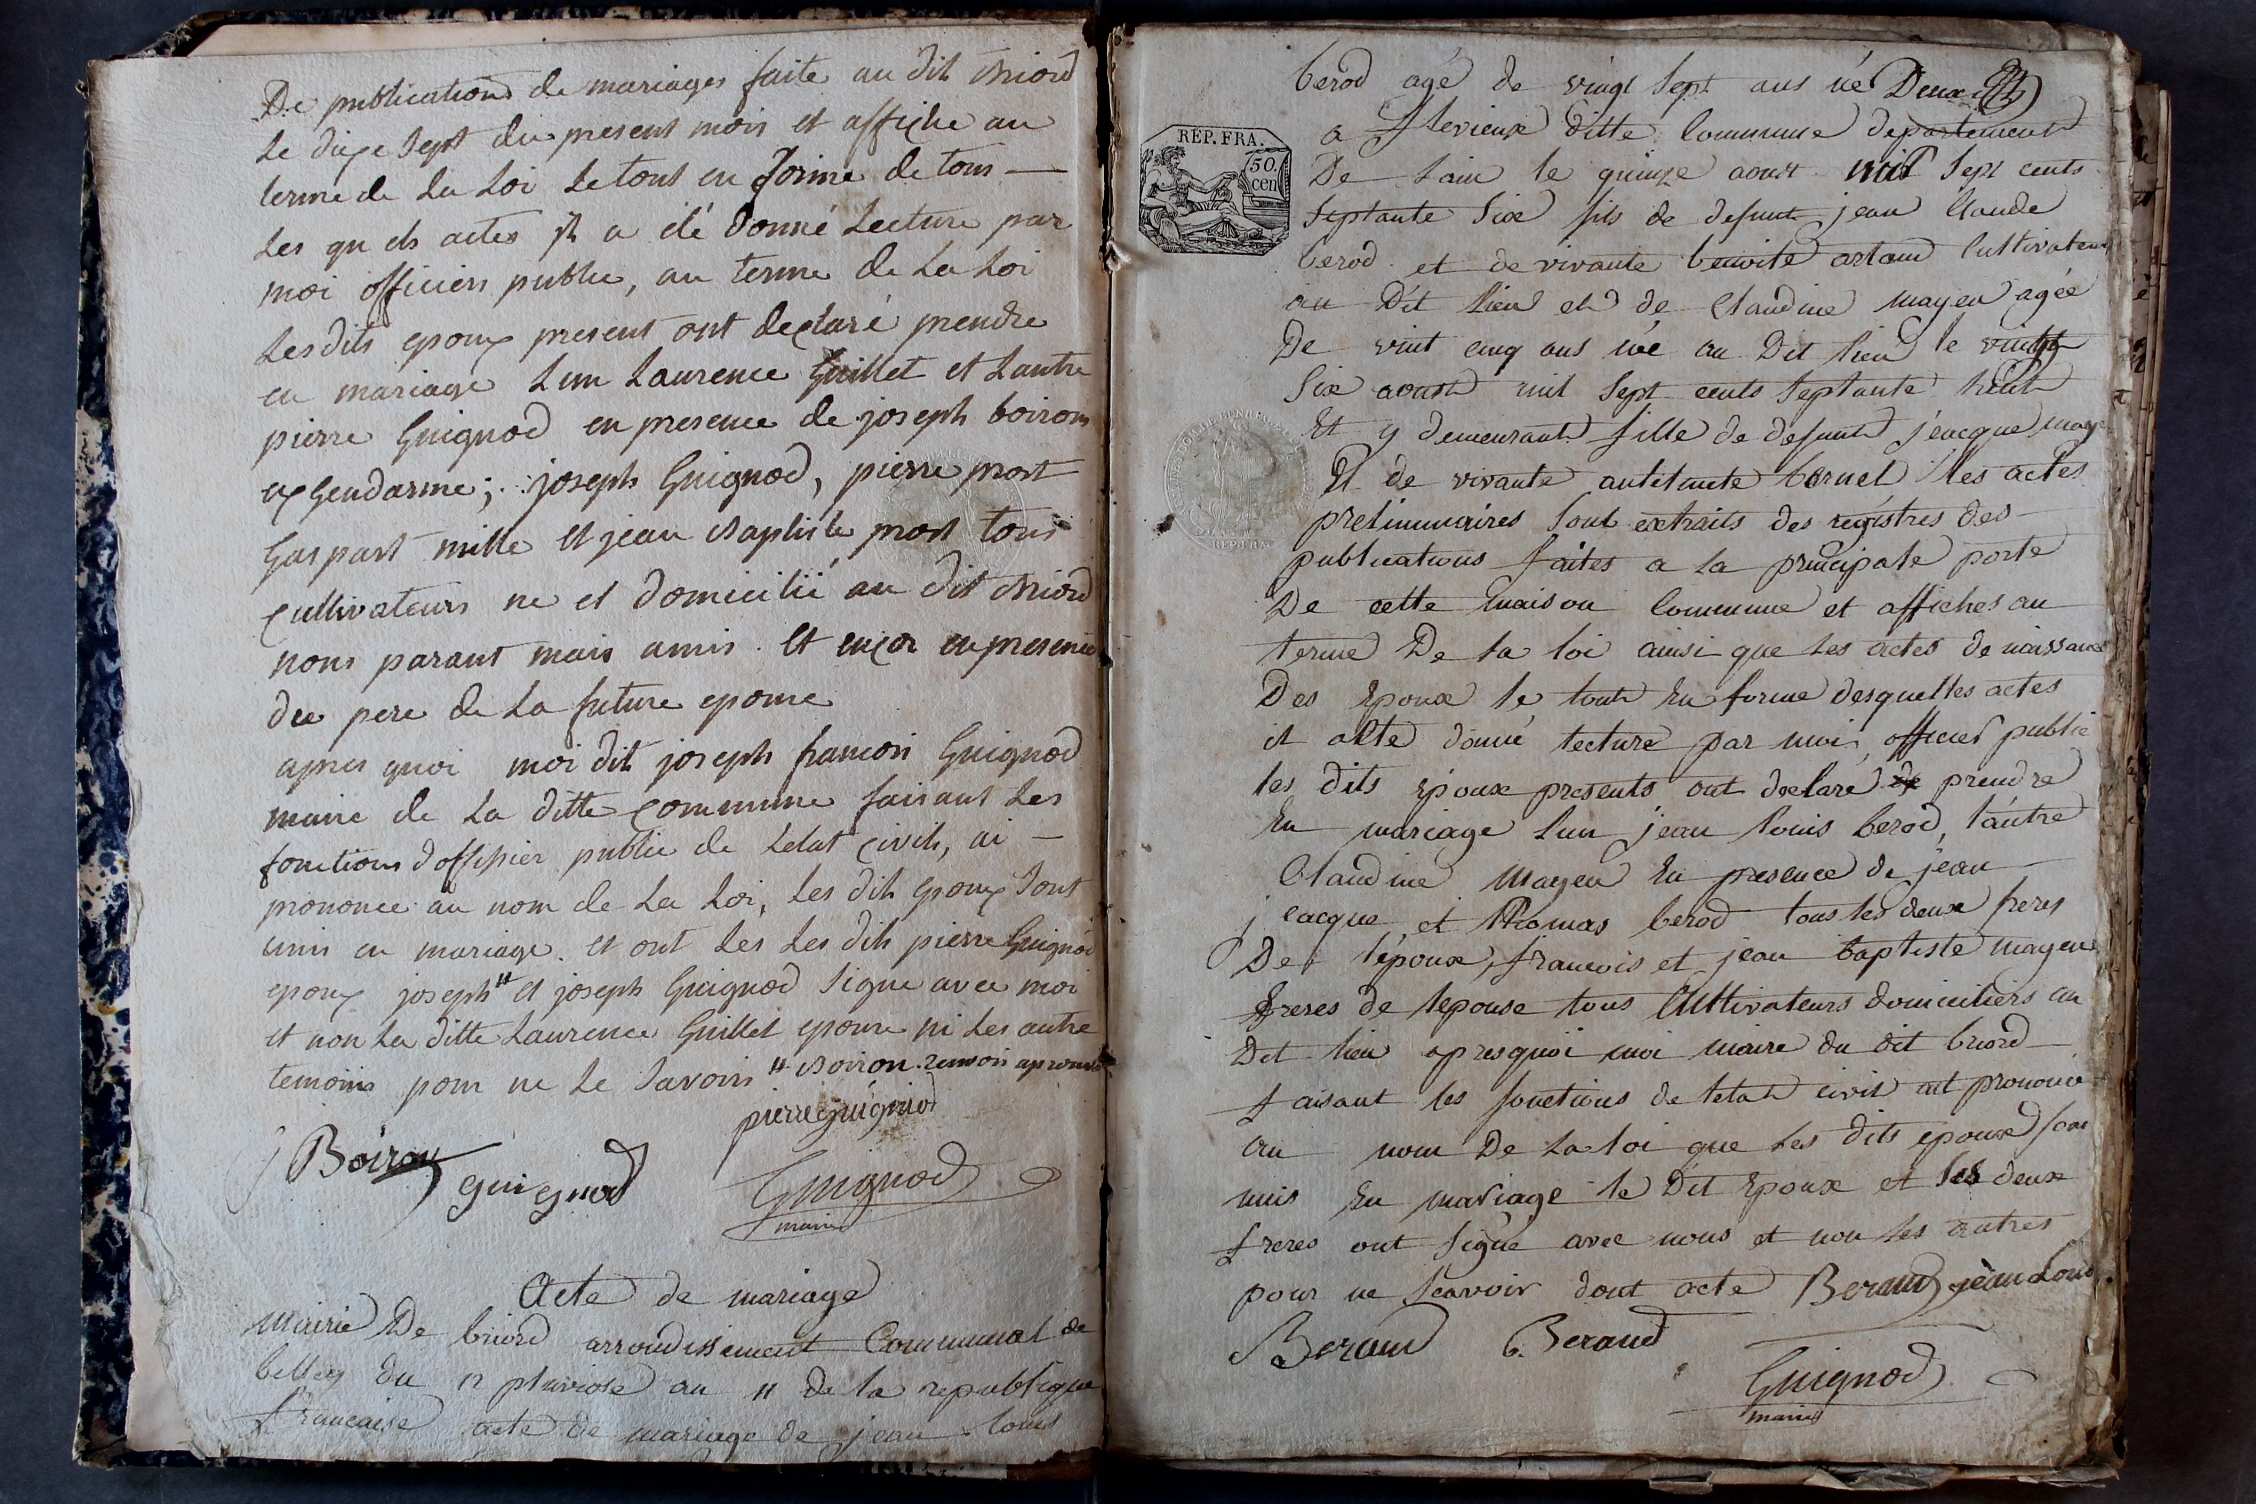 De publications de mariages faite au dit Briord
Le dixe Sept du present mois et affiche au
terme de La Loi Le tout en forme de tous —
Les quels actes il a été donné Lecture par
moi officier public, au terme de La Loi
Lesdits epoux present ont declaré prendre
en mariage Lun Laurence Guillet et Lautre
pierre Guignod en presence de joseph boiron
exgendarme; joseph Guignod, pierre mort
Gaspart mille et jean Baptiste mort tous
cultivateurs ne et domicilié au dit Briord
nons parant mais amis. Et encor en presence
du pere de La future epouse
apres quoi moi dit joseph francois Guignod
maire de La ditte commune faisant Les
fonctions doffissier public de Letat civil, ai —
prononce au nom de La Loi, Les dits epoux Sont
unis en mariage. et ont Les Les dits pierre Guignod
epoux joseph # et joseph Guignod Signe avec moi
et non La ditte Laurence Guillet epouse ni Les autre
temoins pour ne Le Savoir # Boiron renvoi aprouvé
pierre guignod
J Boiron
guignod
Guignod
maire
Acte de mariage
Mairie De briord arrondissement Communal de
belley du 12 pluviose an 11 de la republique
francaise acte de mariage de jean louis
berod agé de vingt Sept ans né Deux
a flevieux ditte Commune departement
De Lain le quinze aoust mil Sept cents
Septante Six fils de defunt jean Claude
berod et de vivante benoite artaud Cultivateur
au Dit lieu et de Claudine mayeu agée
De vint cinq ans née au Dit lieu le vingt
Six aoust mil Sept cents Septante huit
Et y demeurant fille de defunt jeacque maye
Et de vivante antelmette bornet les actes
preliminaires Sont extraits des registres des
publications faites a la principale porte
De cette maison Commune et affichés au
terme De la loi ainsi que les actes de naissance
Des Epoux le tout En forme desquelles actes
il atté donné lecture par moi officier public
les dits Epoux presents ont declaré de prendre
En mariage Lun jean louis berod, l'autre
Claudine Mayeu En presence de jean
jeacque et Thomas berod tous les deux freres
De l'époux, francois et jean baptiste mayeu
freres de lepouse tous Cultivateurs domiciliers au
Dit lieu apresquoi moi maire du dit briord
faisant les fonctions de letat civil ait prononcé
au nom De La loi que Les dits epoux sont
unis En mariage le Dit Epoux et Ses deux
freres ont Signé avec nous et non les autres
pour ne Scavoir dont acte Beraud jean Louis
Beraud B. Beraud
Guignod
maire
REP. FRA.
50.
cen
REP. FRA.